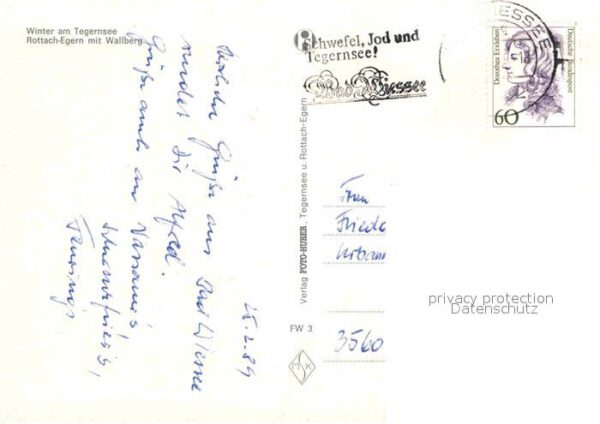 Winter am Tegernsee
Rottach-Egern mit Wallberg
25.2.89
Herzliche Grüße aus Bad Wiessee
sendet Dir Alfred.
Grüße auch an
Schwefel, Jod und
Tegernsee!
Bad Wiessee
WIESSEE
Deutsche Bundespost
Dorothea Erxleben
60
Verlag FOTO-HUBER, Tegernsee u. Rottach-Egern
FW 3
Frau
Friede
Urban
3560
privacy protection
Datenschutz